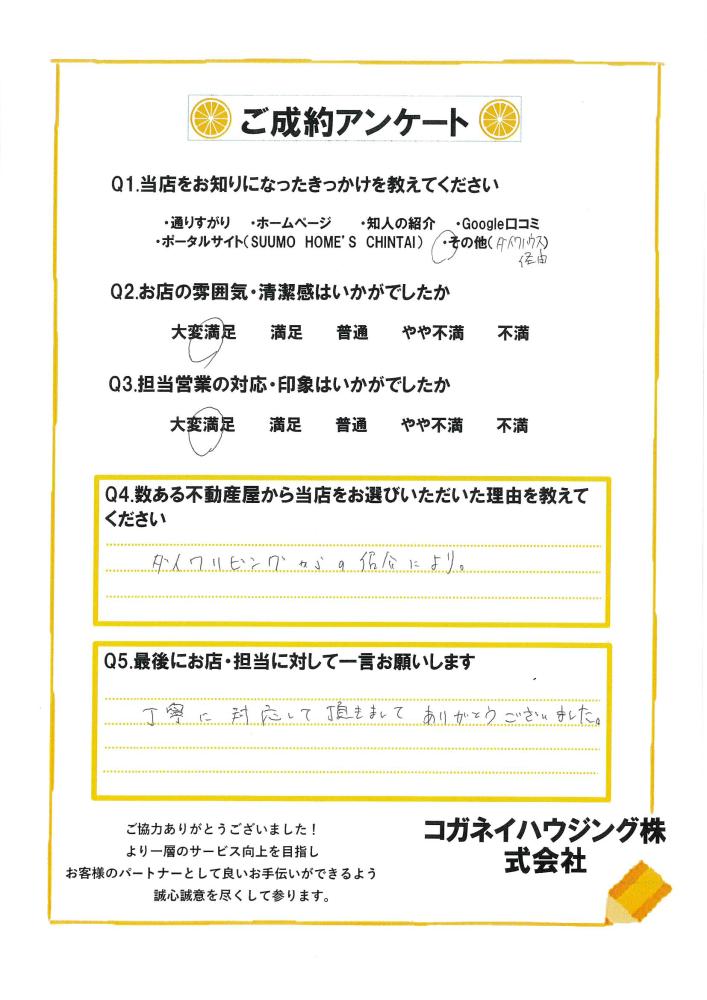 ご成約アンケート
Q1.当店をお知りになったきっかけを教えてください
・通りすがり ・ホームページ ・知人の紹介 ・Google口コミ
・ポータルサイト(SUUMO HOME'S CHINTAI) ・その他(ダイワハウス)
経由
Q2.お店の雰囲気・清潔感はいかがでしたか
大変満足 満足 普通 やや不満 不満
Q3.担当営業の対応・印象はいかがでしたか
大変満足 満足 普通 やや不満 不満
Q4.数ある不動産屋から当店をお選びいただいた理由を教えて
ください
ダイワリビングからの紹介により。
Q5.最後にお店・担当に対して一言お願いします
丁寧に対応して頂きまして ありがとうございました。
ご協力ありがとうございました！
より一層のサービス向上を目指し
お客様のパートナーとして良いお手伝いができるよう
誠心誠意を尽くして参ります。
コガネイハウジング株
式会社